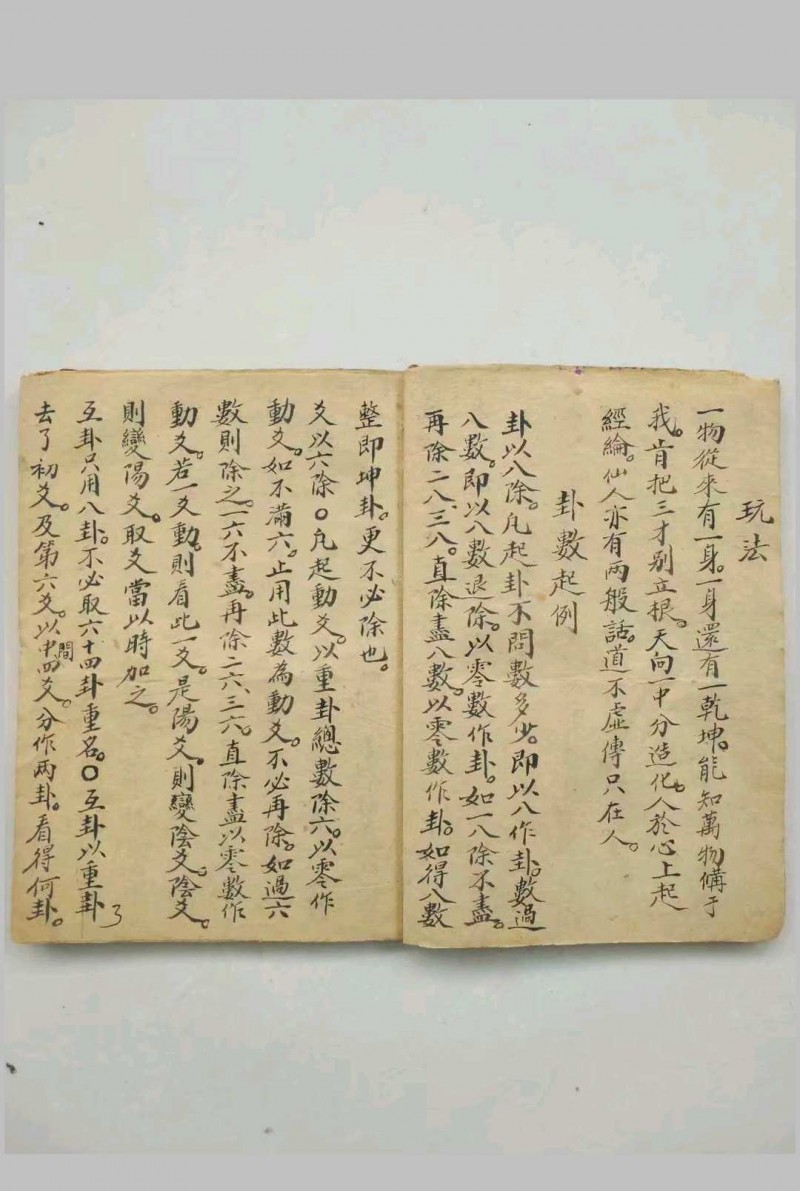 玩法
一物從來有一身。一身還有一乾坤。能知萬物俻于
我。肯把三才别立根。天向一中分造化。人於心上起
經綸。仙人亦有兩般話。道不虛傳只在人。
卦數起例
卦以八除。凢起卦不問數多少。即以八作卦。數過
八數。即以八數退除。以零數作卦。如一八除不盡。
再除二八、三八。直除盡八數。以零數作卦。如得八數
整即坤卦。更不必除也。
爻以六除○凢起動爻。以重卦總數除六。以零作
動爻。如不滿六。止用此數為動爻。不必再除。如過六
數則除之。一六不盡。再除二六、三六。直除盡以零數作
動爻。若一爻動。則看此一爻。是陽爻。則變陰爻。陰爻。
則變陽爻。取爻當以時加之。
互卦只用八卦。不必取六十四卦重名。○互卦以重卦
去了初爻。及第六爻。以中間四爻。分作兩卦。看得何卦。
了